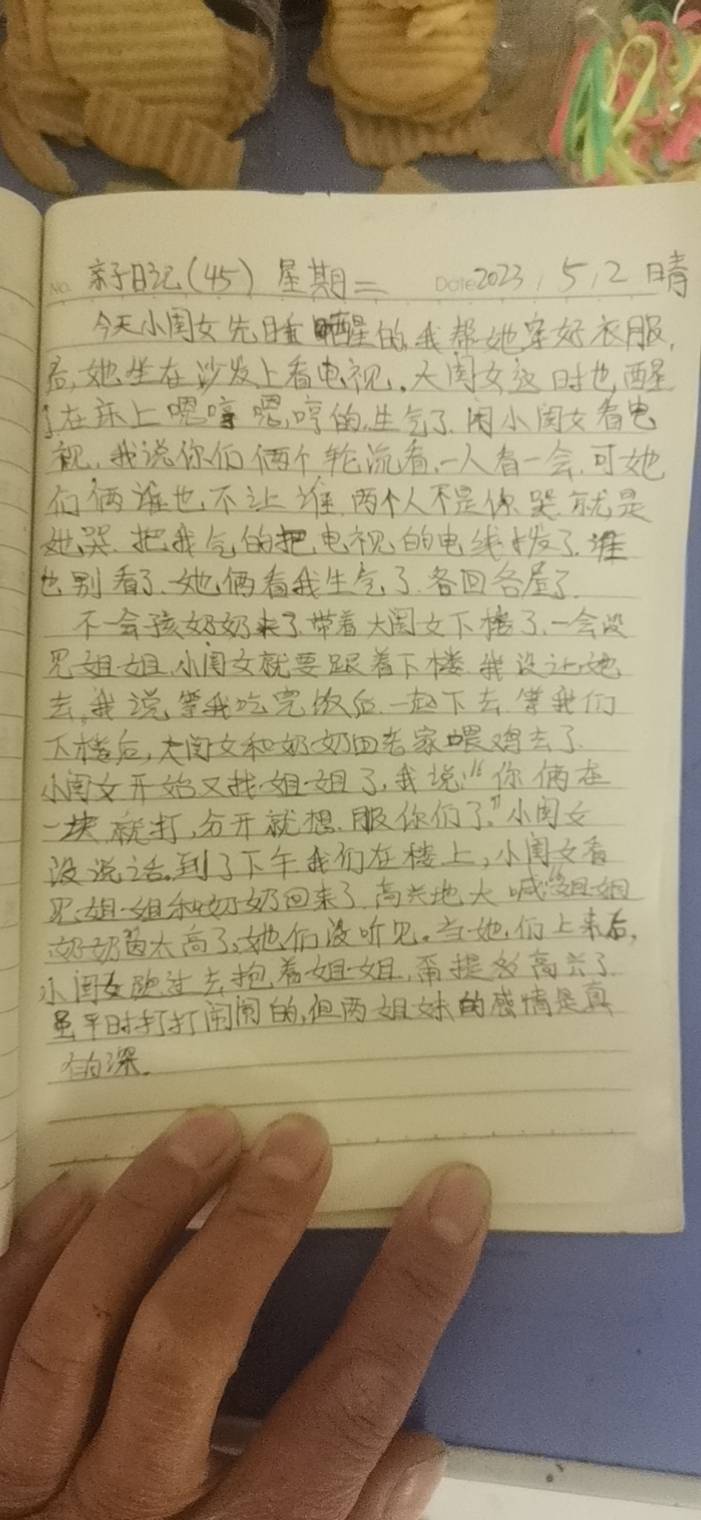 No. 亲子日记(45) 星期二 Date 2023 / 5 / 2 晴
今天小闺女先睡醒的,我帮她穿好衣服,
后,她坐在沙发上看电视。大闺女这时也醒
了在床上嗯哼嗯哼的,生气了.闲小闺女看电
视,我说你们俩个轮流看,一人看一会,可她
们俩谁也不让谁,两个人不是你哭就是
她哭.把我气的把电视的电线拨了.谁
也别看了.她俩看我生气了.各回各屋了.
不一会孩奶奶来了,带着大闺女下楼了.一会没
见姐姐,小闺女就要跟着下楼.我没让她
去,我说,等我吃完饭后,一起下去.等我们
下楼后,大闺女和奶奶回老家喂鸡去了.
小闺女开始又找姐姐了,我说:“你俩在
一块就打,分开就想,服你们了。”小闺女
没说话。到了下午我们在楼上,小闺女看
见姐姐和奶奶回来了.高兴地大喊“姐姐
奶奶”因太高了,她们没听见。当她们上来后,
小闺女跑过去抱着姐姐,甭提多高兴了.
虽平时打打闹闹的,但两姐妹的感情是真
的深.